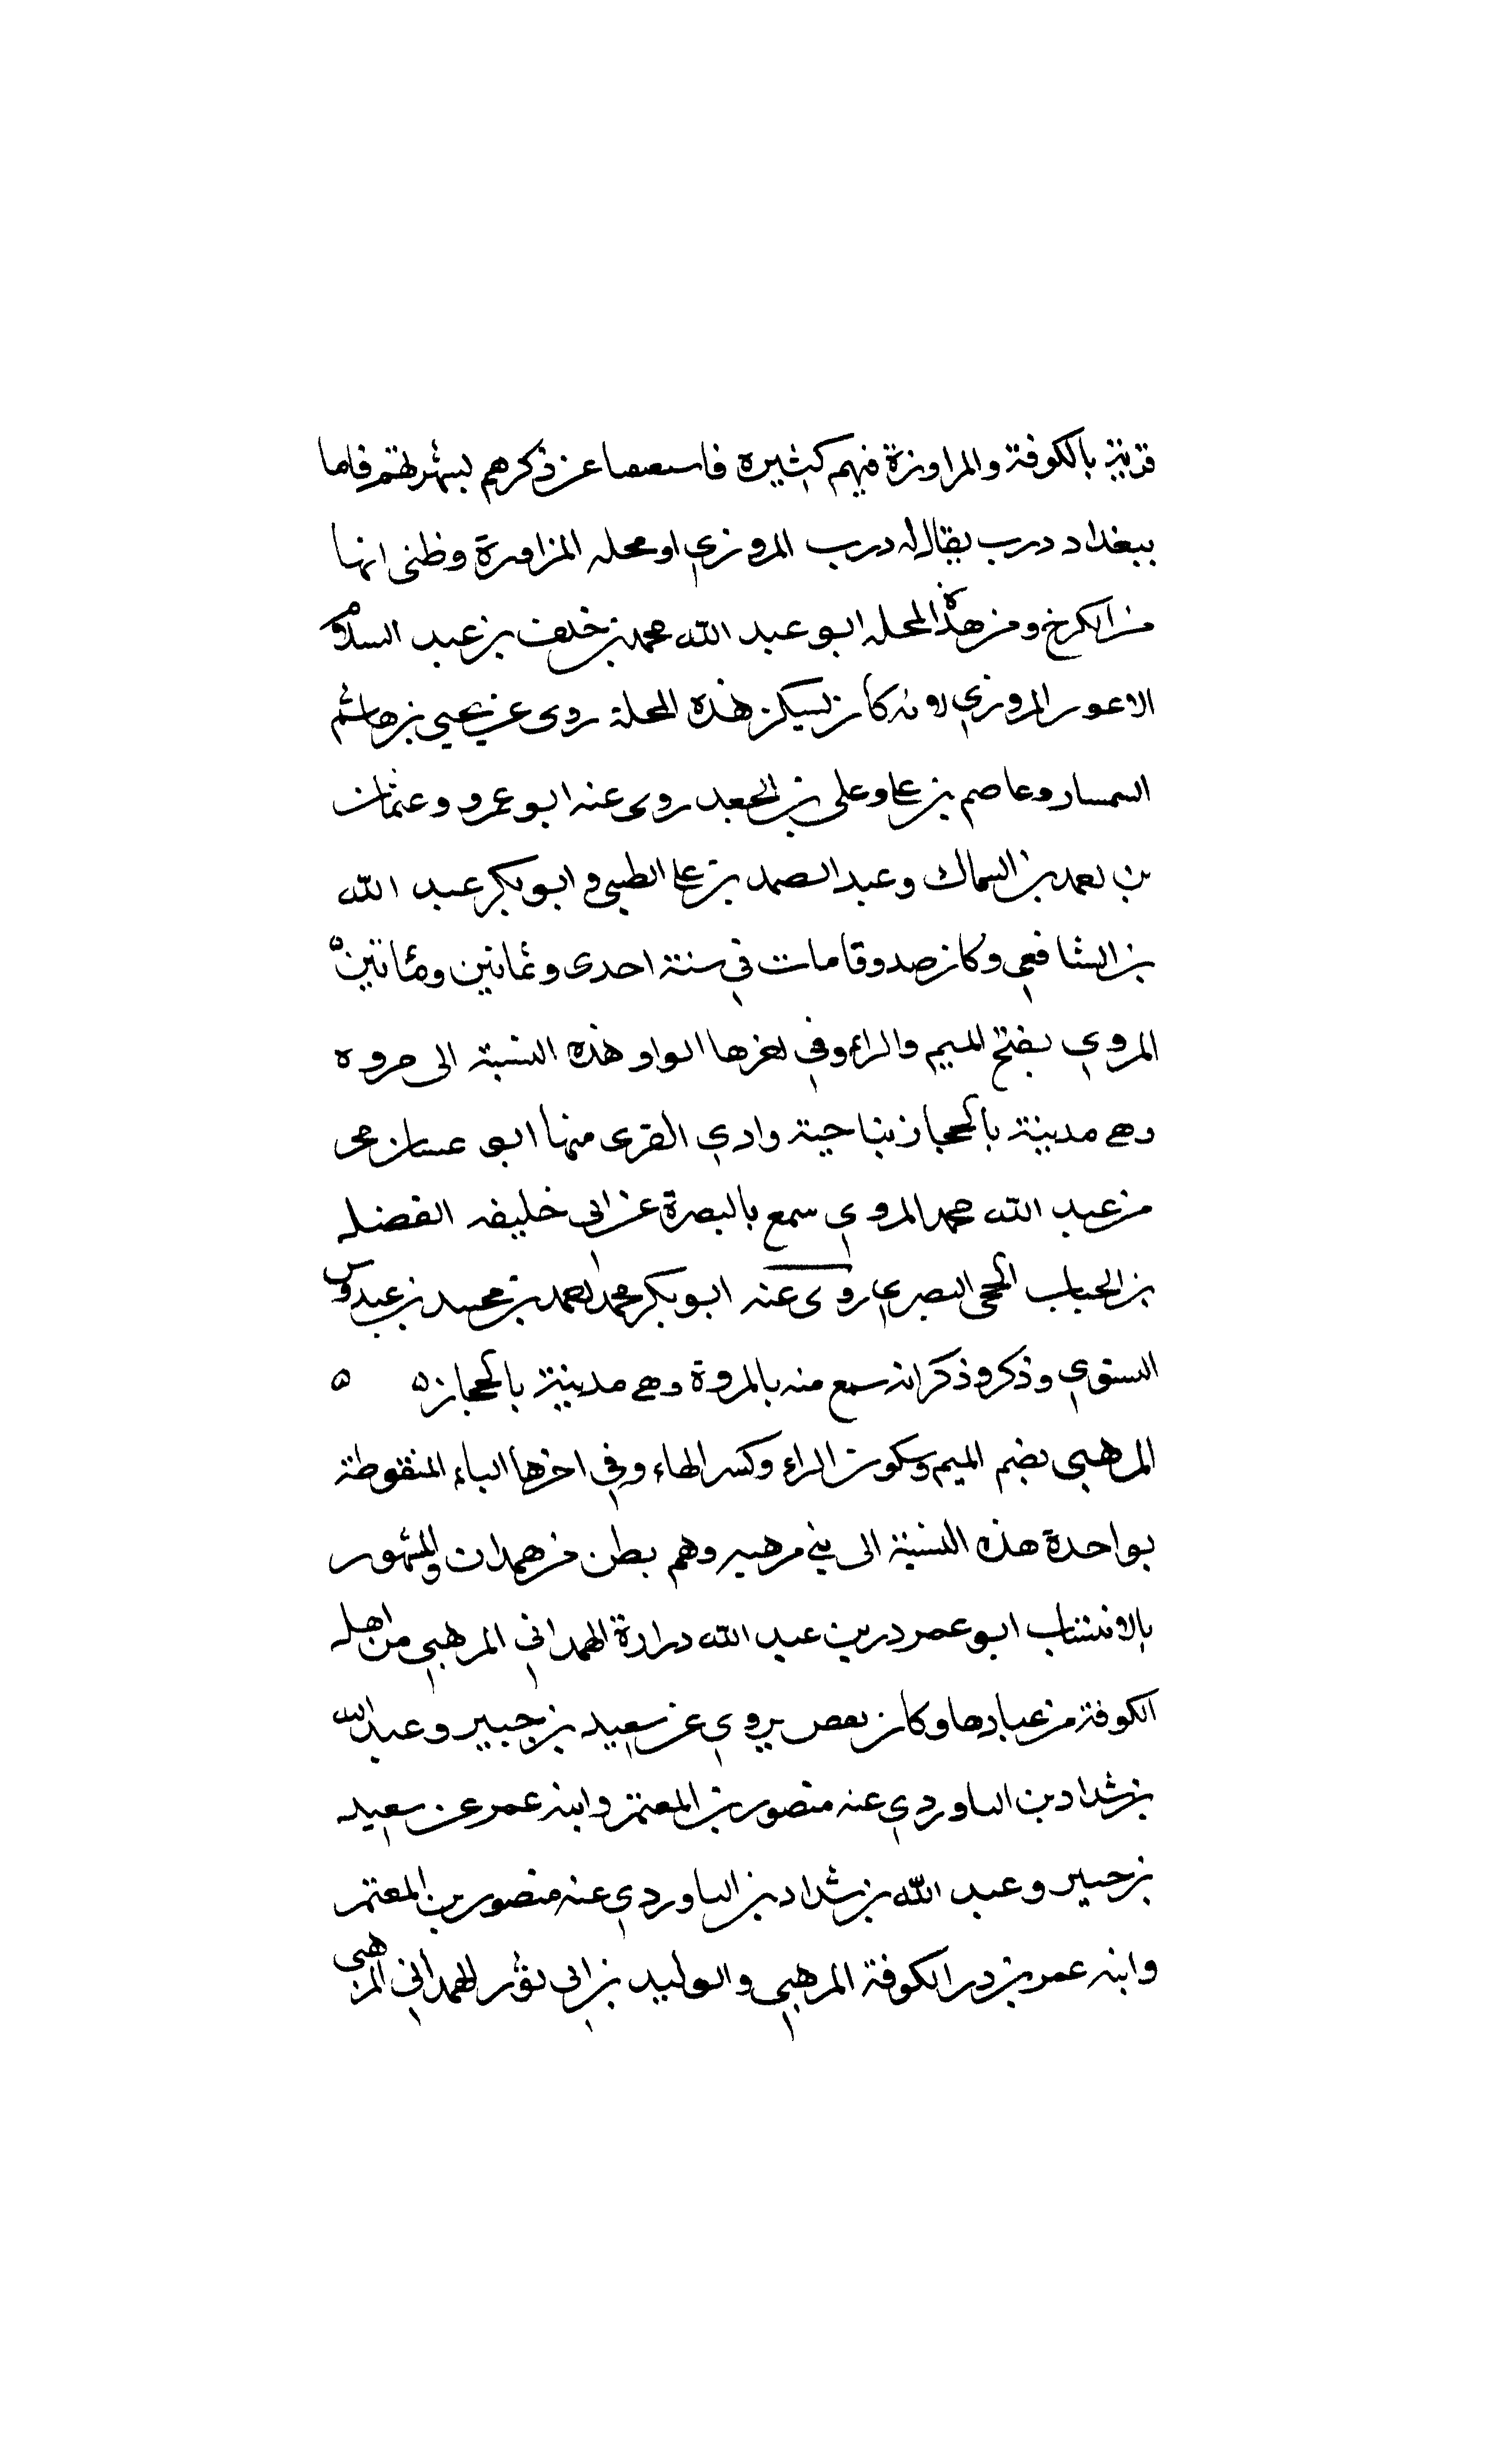 قرية بالكوفة والمراوزة فيهم كثيرة فاستغنينا عن ذكرهم لشهرتهم فاما
ببغداد درب يقال له درب المروزي او محله المزاورة وظنى انها
من الكرخ ومن هذه المحله ابو عبد الله محمد بن خلف بن عبد السلام
الاعور المروزي لانه كان يسكن هذه المحلة روى عن يحيى بن هاشم
السمسار وعاصم بن على وعلى بن الجعد روى عنه ابو عمرو وعثمان
بن احمد بن السماك وعبد الصمد بن على الطبى و ابو بكر عبد الله
بن الشافعي وكان صدوقا مات في سنة احدى وثمانين ومائتين ه
المروي بفتح الميم والراء وفي اخرها الواو هذه النسبة الى مروه
وهى مدينة بالحجاز بناحية وادي القرى منها ابو غسان محمد
من عبد الله محمد المروي سمع بالبصرة عن ابي خليفه الفضل
بن الحباب الجمحى البصري روى عنه ابو بكر محمد احمد بن محمد بن عبدوس
النسوي وذكر وذكر انه سمع منه بالمروة وهى مدينة بالحجاز ه ه
المرهبى بضم الميم وسكون الراء وكسر الهاء وفي اخرها الباء المنقوطة
بواحدة هذه النسبة الى بني مرهبه وهم بطن من همدان والمشهور
بالانتساب ابو عمر در بن عبد الله درارة الهمداني المرهبي من اهل
الكوفة من عبادها وكان يقص يروي عن سعيد بن جبير وعبد الله
بن شداد بن الهاوردي عنه منصور بن المعتمر وابنه عمر عن سعيد
بن جبير وعبد الله بن شداد بن الهاوردي عنه منصور بن المعتمر
وابنه عمر بن در الكوفة المرهبي والوليد بن ابي ثور الهمداني المرهبى